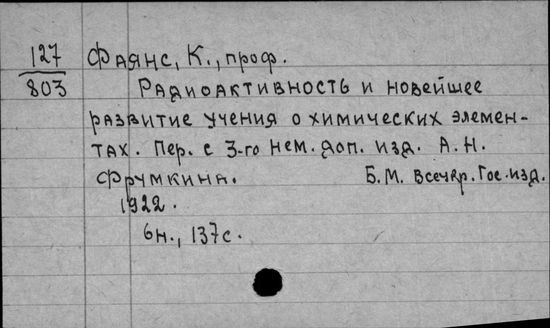 127 Фаянс, К., проф.
803 Радиоактивность и новейшее
развитие учения о химических элемен-
тах. Пер. с 3-го нем. доп. изд. А. Н.
Фрумкина. Б. М. Всеукр. Гос. изд.
1922.
6н., 137с.